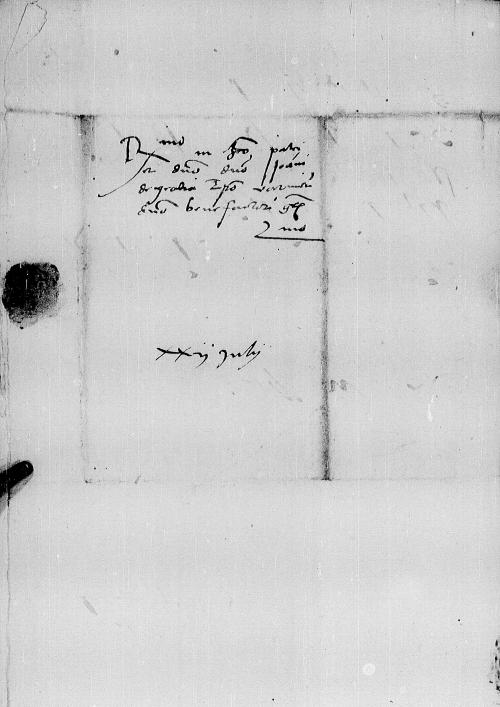 R mo in χρο patri
et dno dno Joanni
de gratia Epo varmien
dno benefactori gra
mo
xxij July